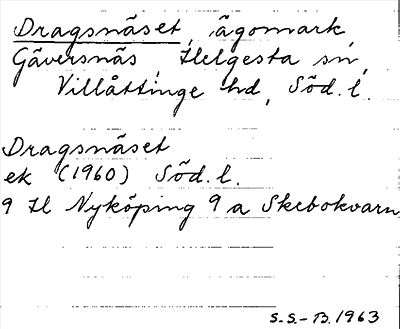 Dragsnäset, ägomark,
Gäversnäs, Helgesta sn,
Villåttinge hd, Söd. l.
Dragsnäset
ek (1960) Söd. l.
9 H Nyköping 9 a Skebokvarn
S.S.-B. 1963